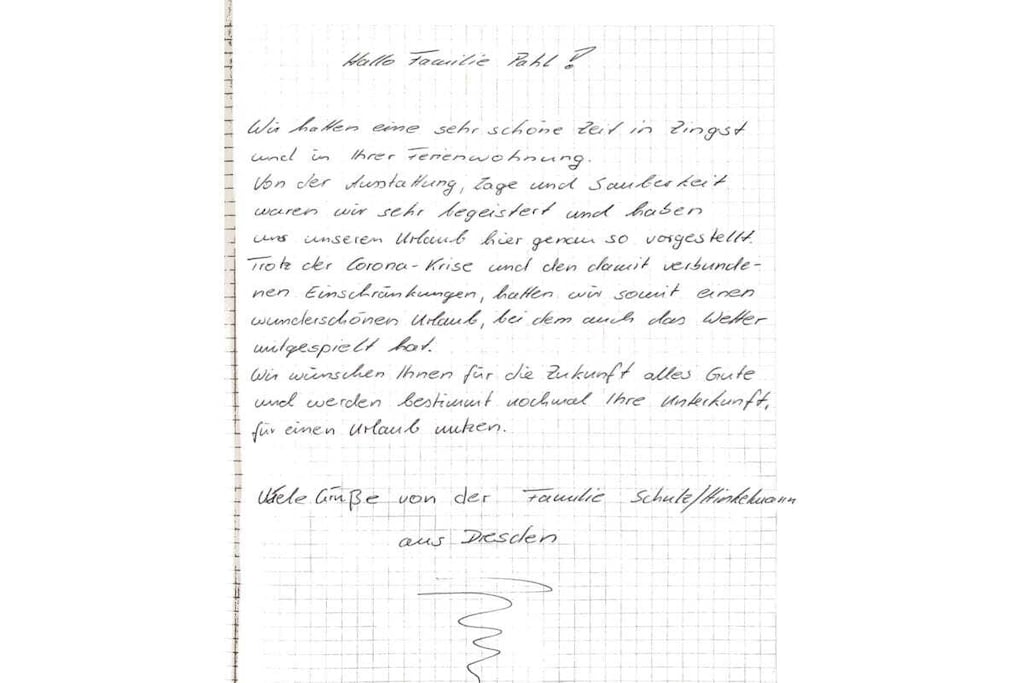 Hallo Familie Pahl!
Wir hatten eine sehr schöne Zeit in Zingst
und in Ihrer Ferienwohnung.
Von der Ausstattung, Lage und Sauberkeit
waren wir sehr begeistert und haben
uns unseren Urlaub hier genau so vorgestellt.
Trotz der Corona-Krise und den damit verbunde-
nen Einschränkungen, hatten wir somit einen
wunderschönen Urlaub, bei dem auch das Wetter
mitgespielt hat.
Wir wünschen Ihnen für die Zukunft alles Gute
und werden bestimmt nochmal Ihre Unterkunft,
für einen Urlaub nutzen.
Viele Grüße von der Familie Schulz/Hinkelmann
aus Dresden